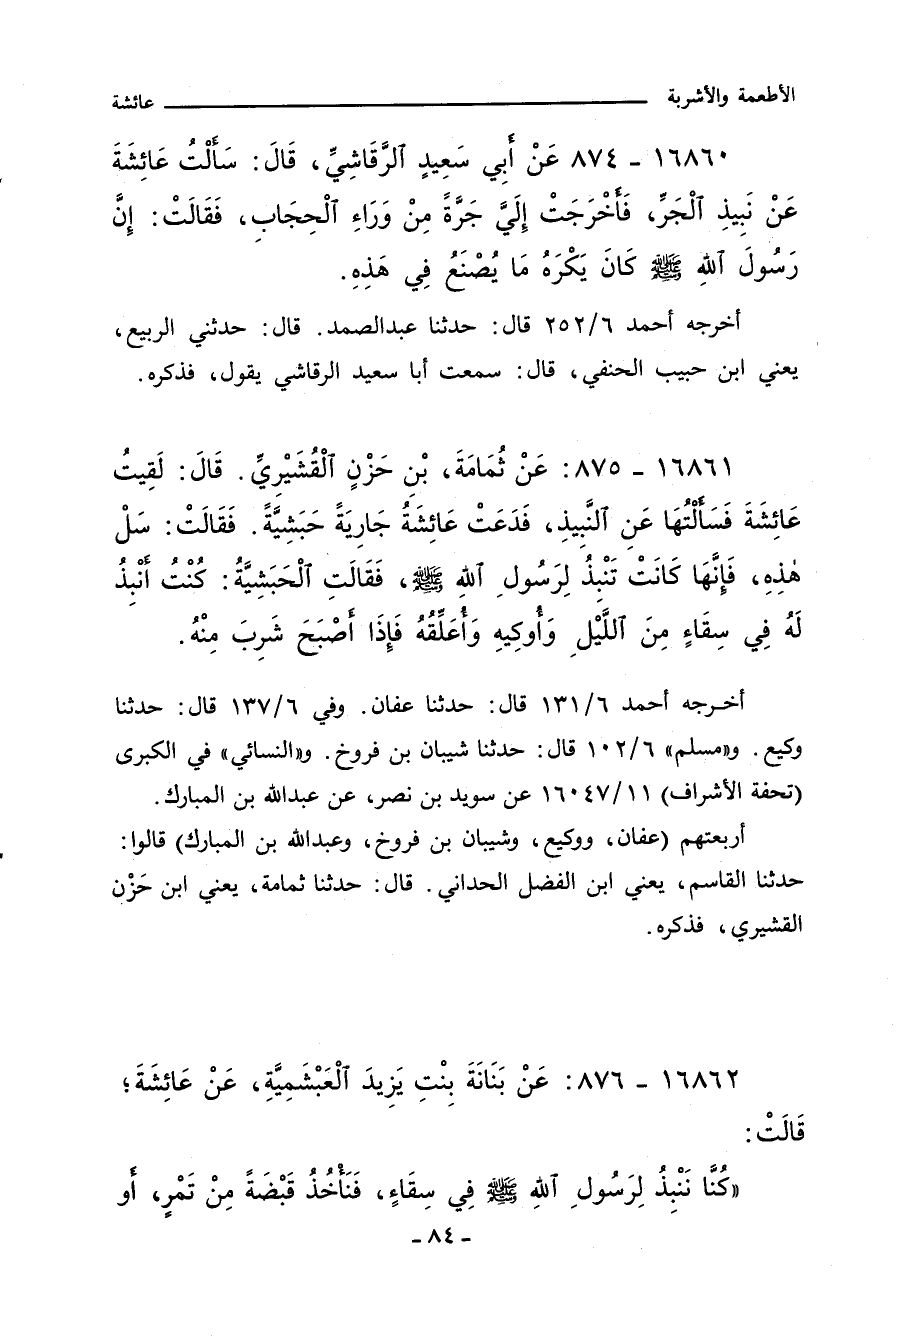 الأطعمة والأشربة عائشة
١٦٨٦٠ - ٨٧٤ عَنْ أَبِي سَعِيدٍ ٱلرَّقَاشِيِّ، قَالَ: سَأَلْتُ عَائِشَةَ
عَنْ نَبِيذِ ٱلْجَرِّ، فَأَخْرَجَتْ إِلَيَّ جَرَّةً مِنْ وَرَاءِ ٱلْحِجَابِ، فَقَالَتْ: إِنَّ
رَسُولَ ٱللهِ ﷺ كَانَ يَكْرَهُ مَا يُصْنَعُ فِي هَذِهِ.
أخرجه أحمد ٢٥٢/٦ قال: حدثنا عبدالصمد. قال: حدثني الربيع،
يعني ابن حبيب الحنفي، قال: سمعت أبا سعيد الرقاشي يقول، فذكره.
١٦٨٦١ - ٨٧٥: عَنْ ثُمَامَةَ، بْنِ حَزْنٍ ٱلْقُشَيْرِيِّ. قَالَ: لَقِيتُ
عَائِشَةَ فَسَأَلْتُهَا عَنِ ٱلنَّبِيذِ، فَدَعَتْ عَائِشَةُ جَارِيَةً حَبَشِيَّةً. فَقَالَتْ: سَلْ
هٰذِهِ، فَإِنَّهَا كَانَتْ تَنْبِذُ لِرَسُولِ ٱللهِ ﷺ، فَقَالَتِ ٱلْحَبَشِيَّةُ: كُنْتُ أَنْبِذُ
لَهُ فِي سِقَاءٍ مِنَ ٱللَّيْلِ وَأُوكِيهِ وَأُعَلِّقُهُ فَإِذَا أَصْبَحَ شَرِبَ مِنْهُ.
أخـرجه أحمد ١٣١/٦ قال: حدثنا عفان. وفي ١٣٧/٦ قال: حدثنا
وكيع. و«مسلم» ١٠٢/٦ قال: حدثنا شيبان بن فروخ. و«النسائي» في الكبرى
(تحفة الأشراف) ١٦٠٤٧/١١ عن سويد بن نصر، عن عبدالله بن المبارك.
أربعتهم (عفان، ووكيع، وشيبان بن فروخ، وعبدالله بن المبارك) قالوا:
حدثنا القاسم، يعني ابن الفضل الحداني. قال: حدثنا ثمامة، يعني ابن حَزْن
القشيري، فذكره.
١٦٨٦٢ - ٨٧٦: عَنْ بَنَانَةَ بِنْتِ يَزِيدَ ٱلْعَبْشَمِيَّةِ، عَنْ عَائِشَةَ؛
قَالَتْ:
«كُنَّا نَنْبِذُ لِرَسُولِ ٱللهِ ﷺ فِي سِقَاءٍ، فَنَأْخُذُ قَبْضَةً مِنْ تَمْرٍ، أَو
- ٨٤ -